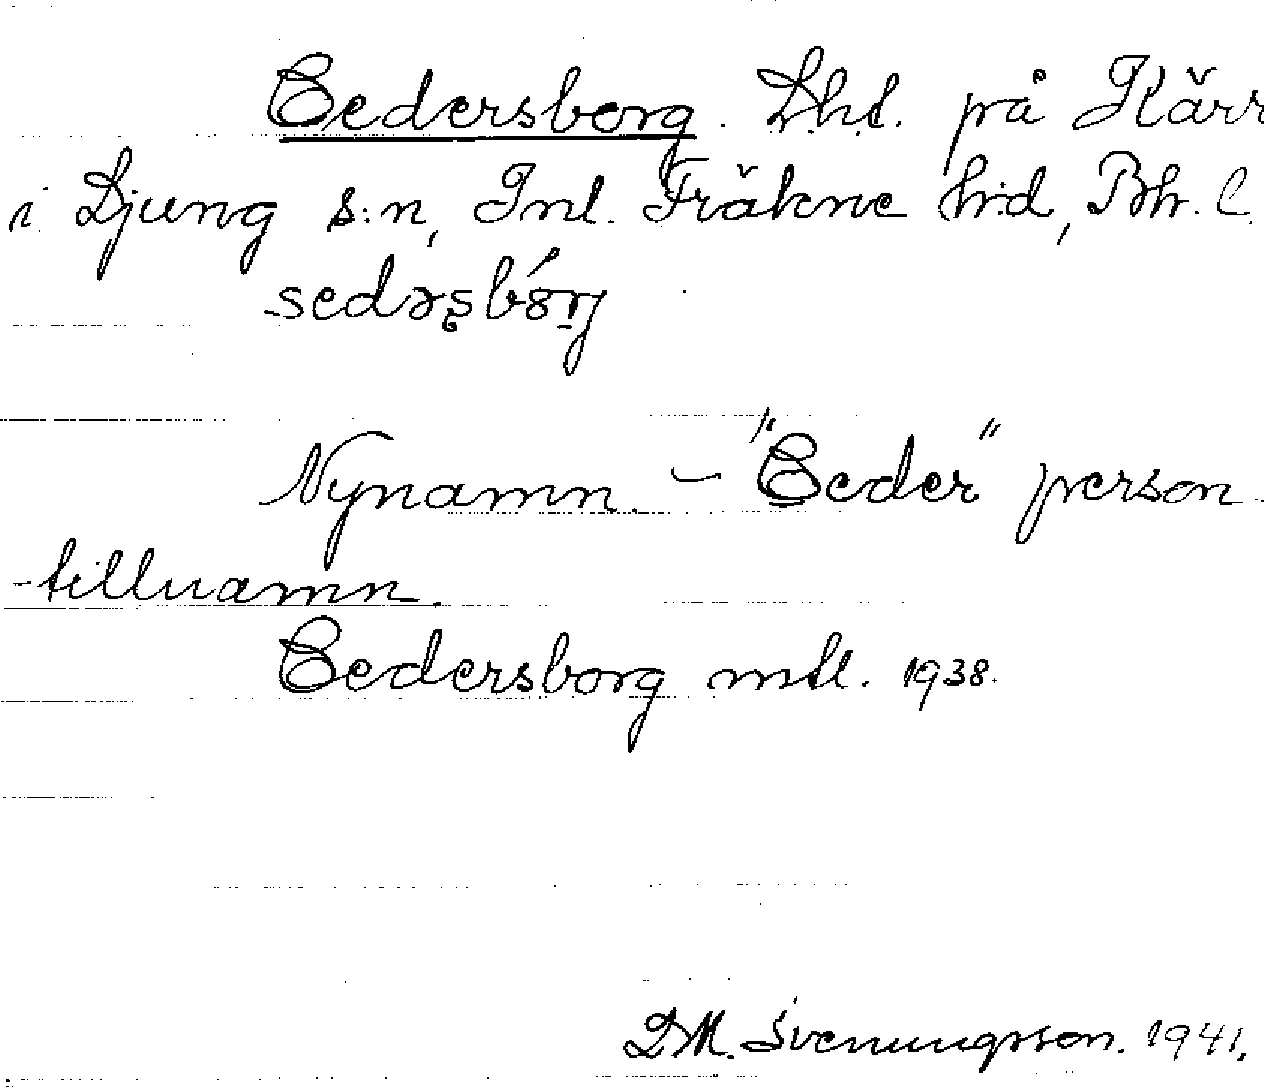 Cedersborg. Lht. på Kärr
i Ljung s:n, Inl. Fräkne h:d, Bh. l.
Nynamn. - "Ceder" person-
-tillnamn.
Cedersborg mtl. 1938.
D.M. Svenungsson. 1941.